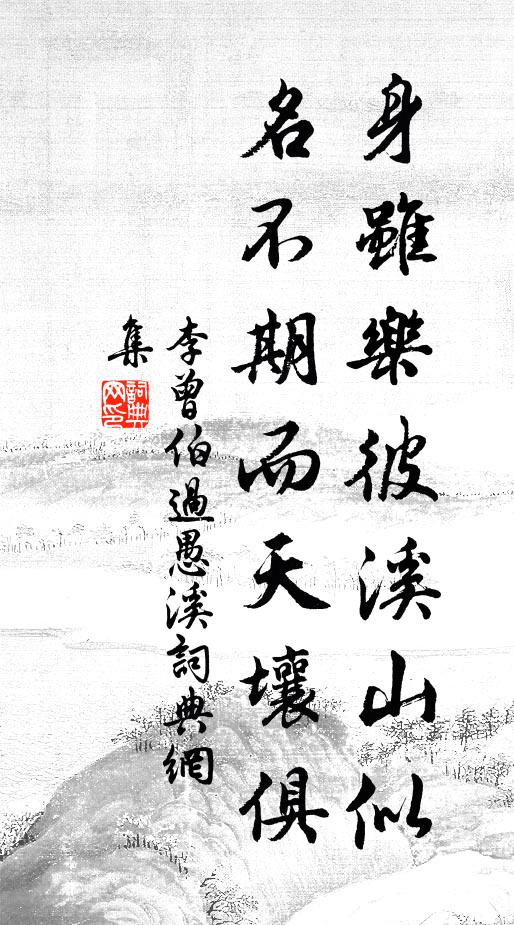 身雖樂彼溪山似
名不期而天壤俱
李曾伯過愚溪詞典網
集
詞典網印